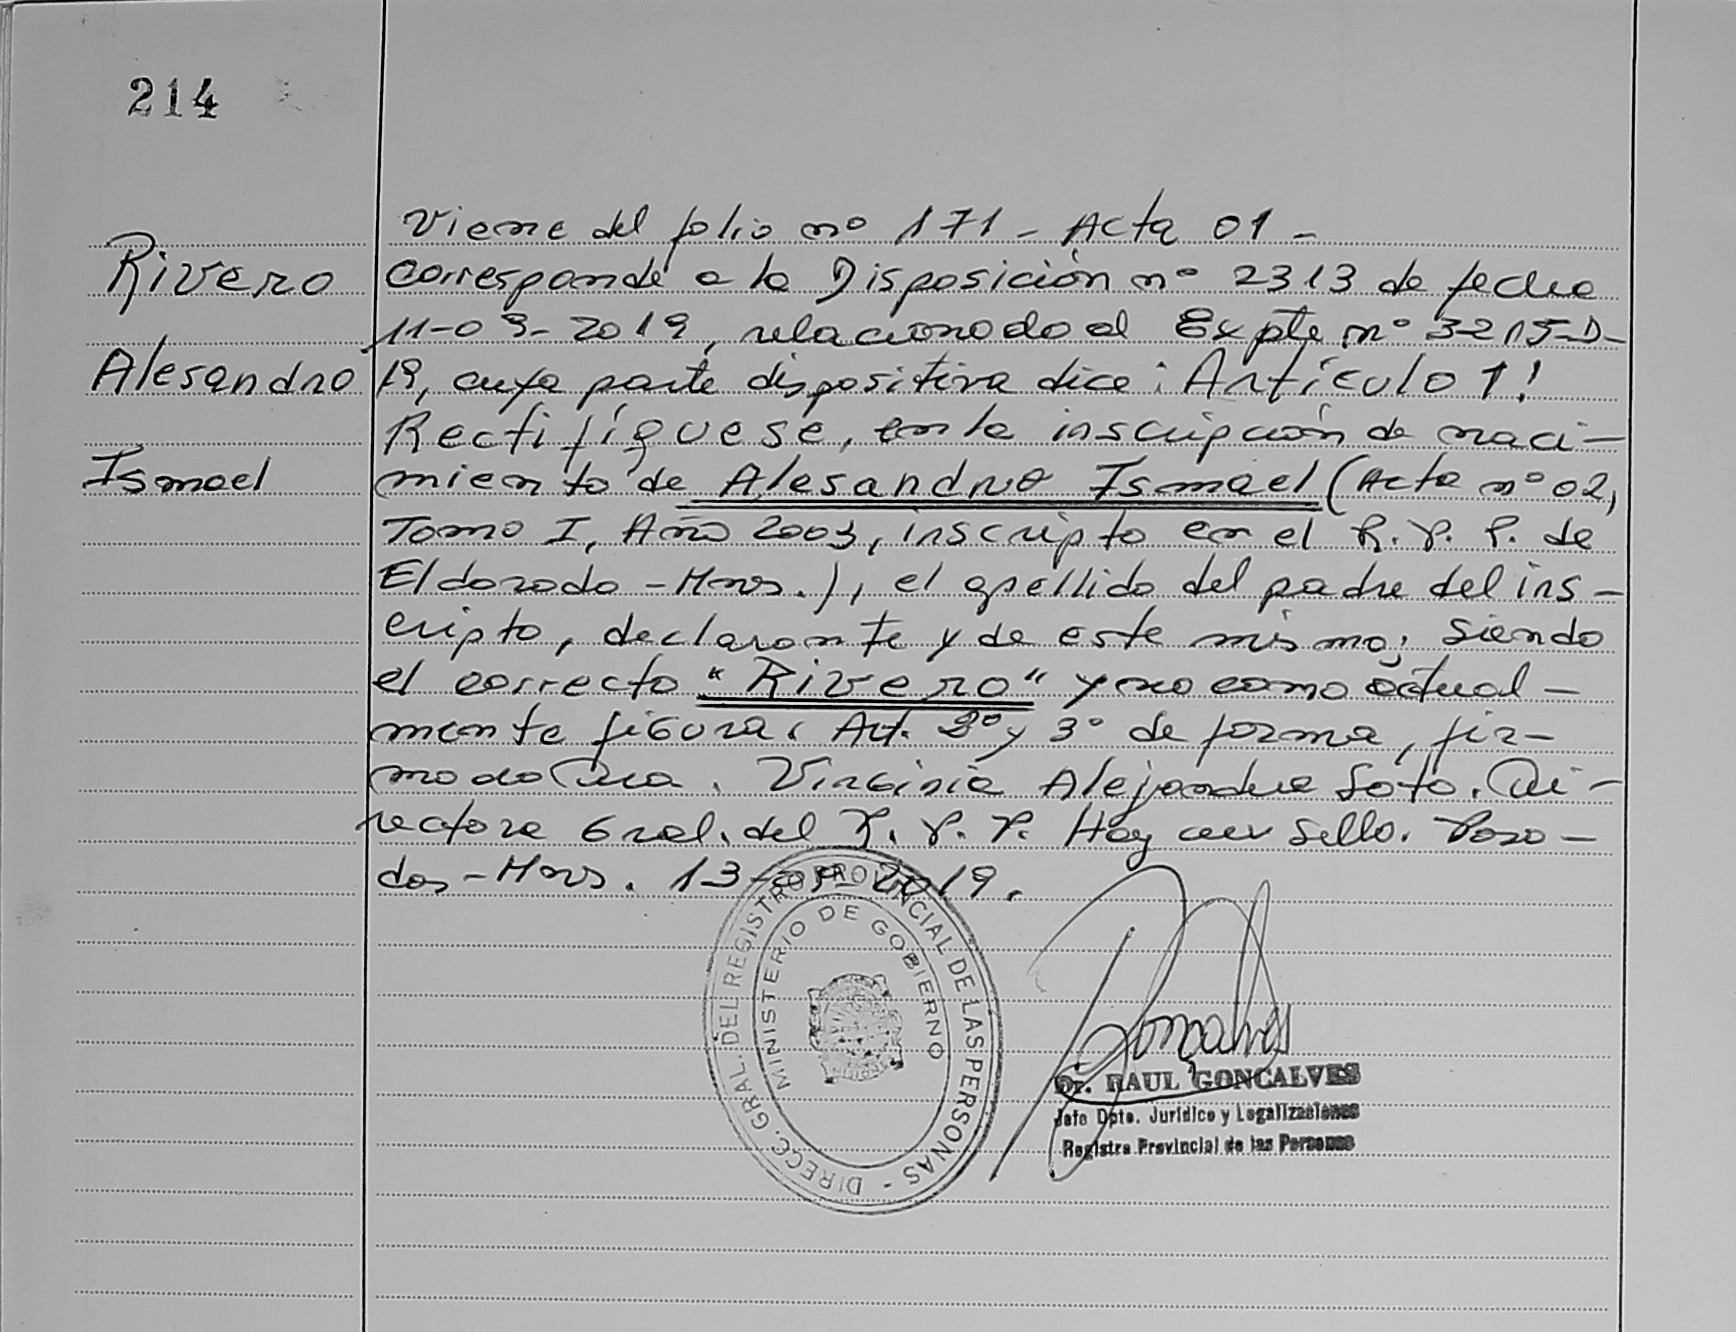 214
Viene del folio nº 171 - Acta 01 -
Rivero
corresponde a la Disposición nº 2313 de fecha
11-09-2019, relacionado al Expte nº 3215-D-
Alesandro
19, cuya parte dispositiva dice: Artículo 1º
Rectifíquese, en la inscripción de naci-
Ismael
miento de Alesandro Ismael (Acta nº 02,
Tomo I, Año 2003, inscripto en el R. P. P. de
Eldorado - Mnes.), el apellido del padre del ins-
cripto, declarante y de este mismo; siendo
el correcto "Rivero" y no como actual-
mente figura. Art. 2º y 3º de forma, fir-
mado Virginia Alejandra Soto. Di-
rectora Gral. del R. P. P. Hay un sello. Posa-
das - Mnes. 13-09-2019.
DIRECC. GRAL. DEL REGISTRO PROVINCIAL DE LAS PERSONAS -
MINISTERIO DE GOBIERNO
MISIONES
Goncalves
Dr. RAUL GONCALVES
Jefe Dpto. Jurídico y Legalizaciones
Registro Provincial de las Personas